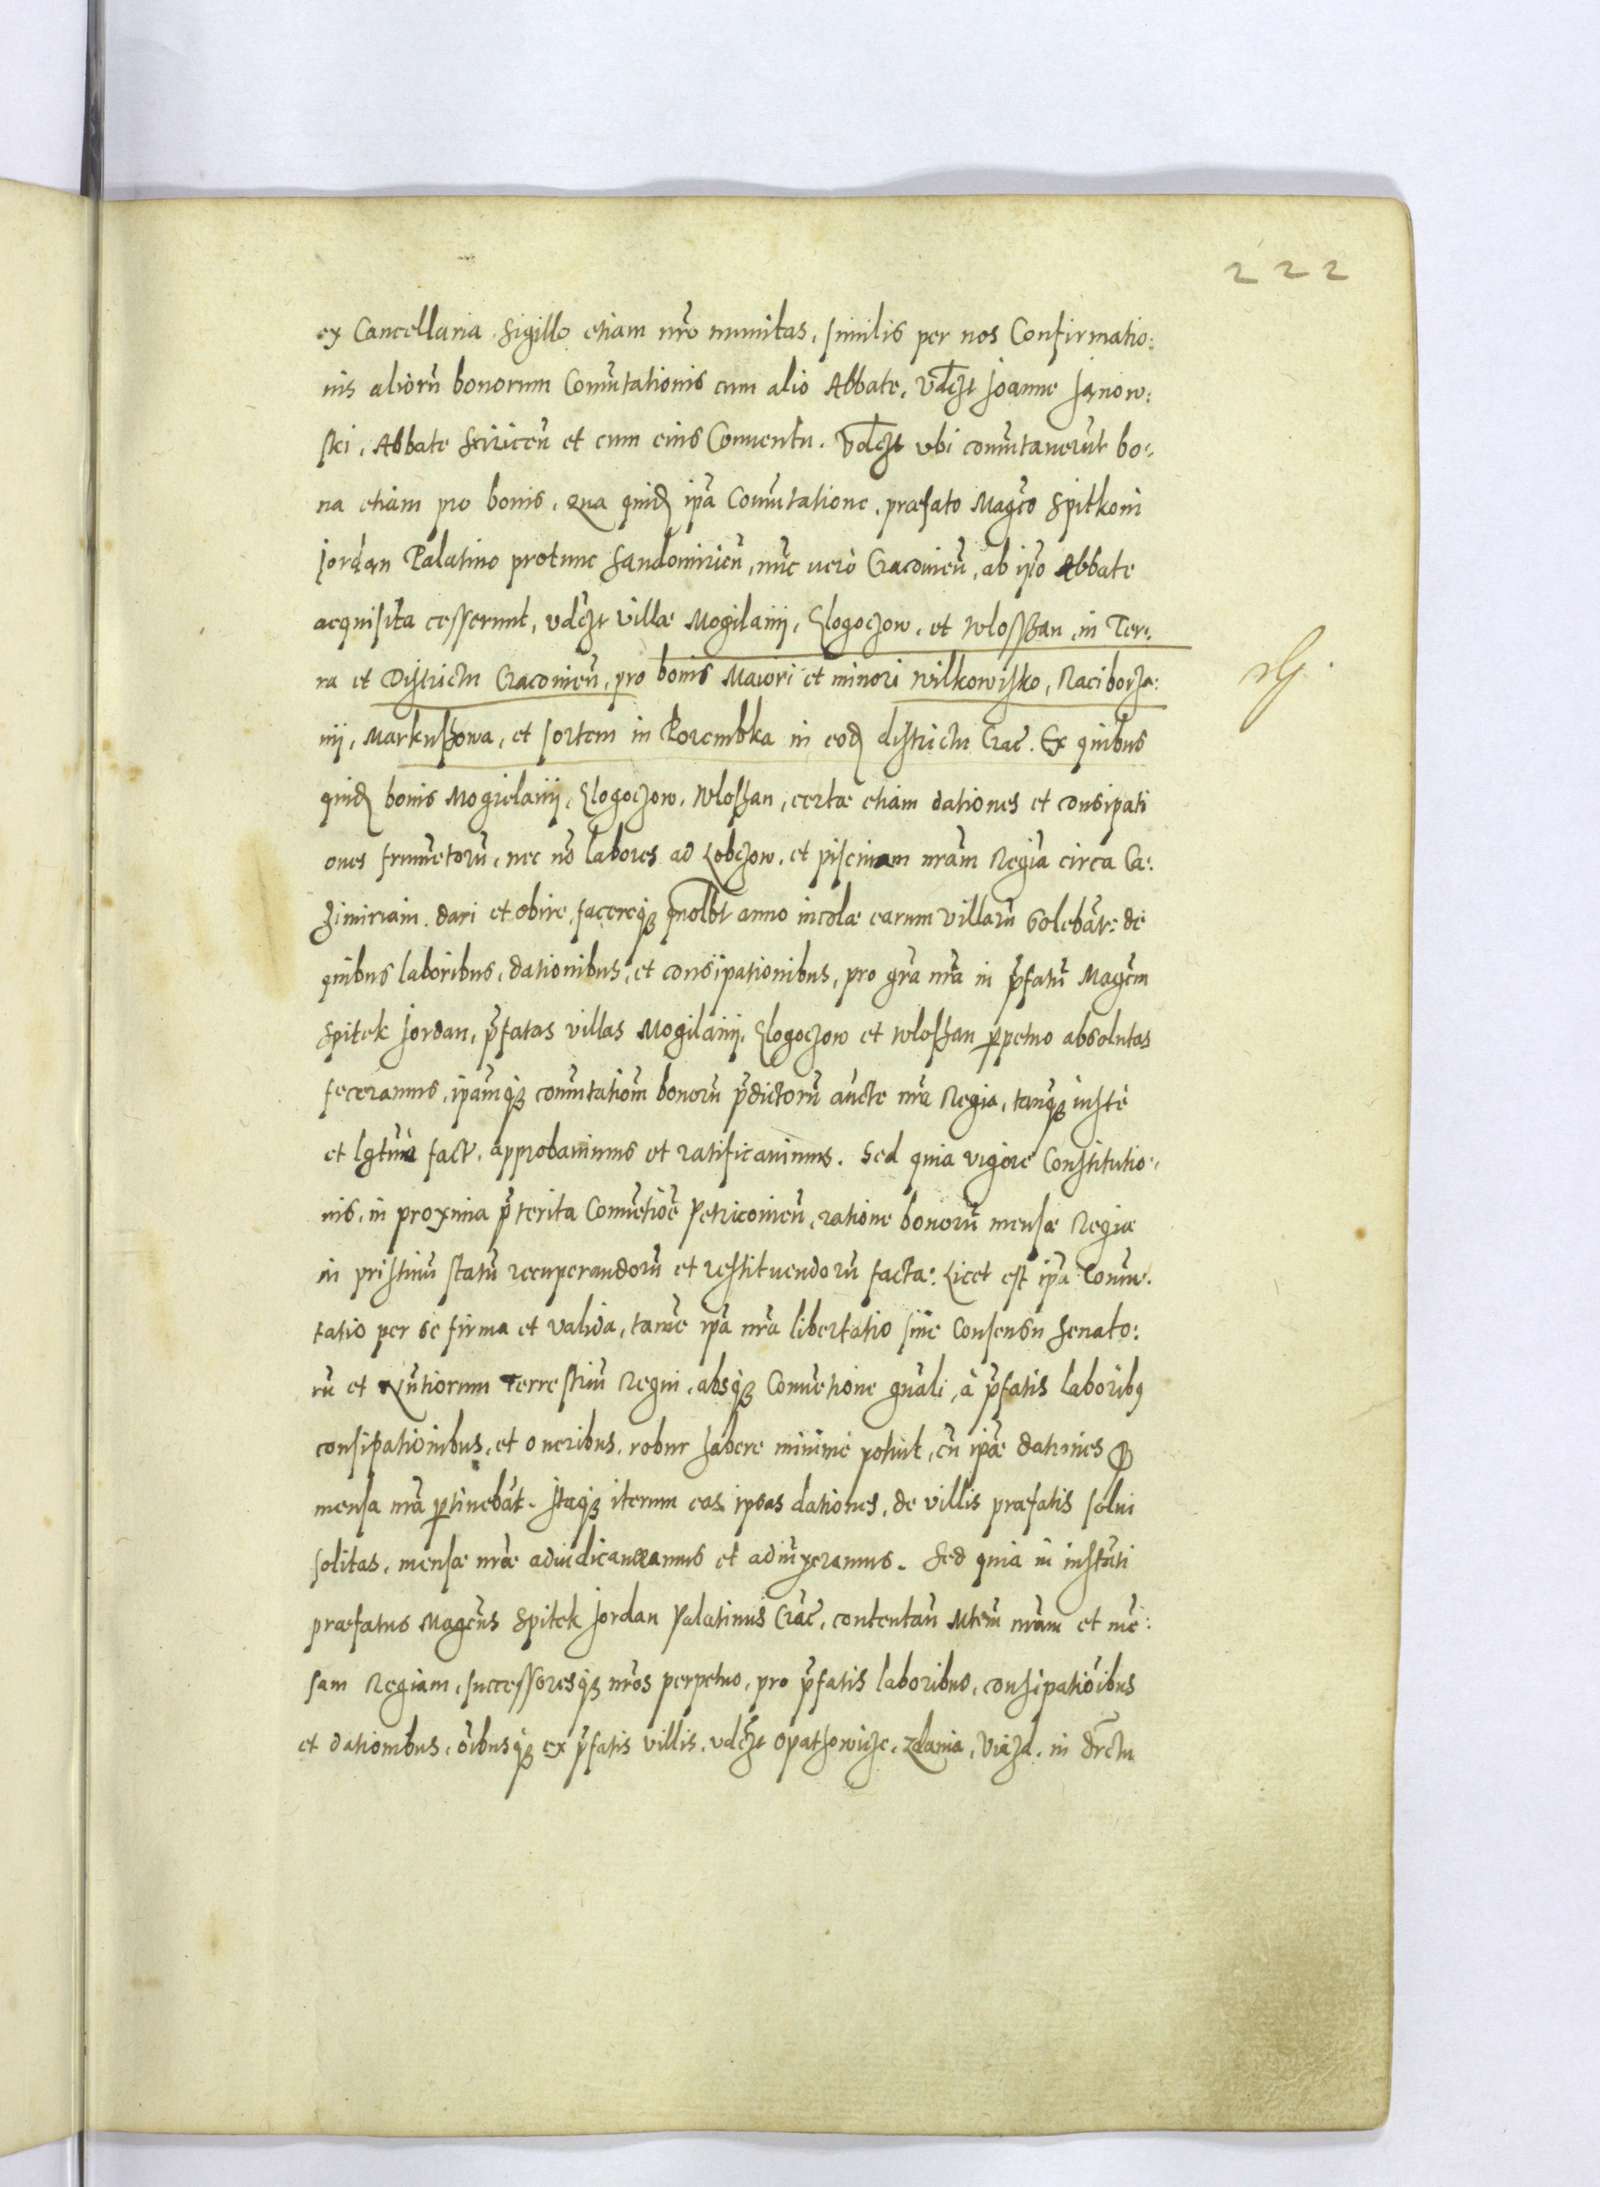 222
ex Cancellaria Sigillo etiam nr̃o munitas, similis per nos Confirmatio:
nis aliorũ bonorum Comũtationis cum alio Abbate, vdelzt Joanne Janow:
ski, Abbate Sciricen̄ et cum eius Conventu. Vdelzt vbi comũtaverũt bo:
na etiam pro bonis, Qua quidẽ ip̃a Comũtatione, præfato Magc̃o Spitkoni
Jordan Palatino protunc Sandomirien̄, nũc vero Cracovien̄, ab ip̃o Abbate
acquisita cesserunt, vdczt villæ Mogilanij, Glogoczow, et Wlossan, in Ter:
ra et Districtu Cracovien̄, pro bonis Maiori et minori Wilkowisko, Raciborza:
nij, Markuszowa, et sortem in Porembka in eodẽ districtu Crac̃. Ex quibus
quidẽ bonis Mogielanij, Glogoczow, Wlossan, certæ etiam dationes et consipati
ones frumẽtorũ, nec nõ labores ad Lobzow, et piscinam nr̃am Regiã circa Ca:
zimiriam, dari et obire, facereq3 quolbt anno incolæ earum villarũ solebãt: de
quibus laboribus, dationibus, et consipationibus, pro gr̃a nr̃a in p̃fatũ Magc̃m
Spitek Jordan, p̃fatas villas Mogilanij, Glogoczow et Wlossan p̱petuo absolutas
feceramus, ipamq3 comũtatiom̃ bonorũ p̃dictorũ auc̃te nr̃a Regia, tanq3 iuste
et lgtime fact, approbavimus et ratificavimus. Sed quia vigore Constitutio:
nis, in proxima p̃terita Convẽtiõe Petricovien̄, ratione bonorũ mensæ Regiæ
in pristinũ statũ recuperandorũ et restituendorũ factæ: Licet est ip̃a Comu:
tatio per se firma et valida, tamẽ ip̃a nr̃a libertatio sine Consensu Senato:
rũ et Nũtiorum Terrestriũ Regni, absq3 Convẽtione gñali, à p̃fatis laborib9
consipationibus, et oneribus, robur habere minime potuit, cũ ip̃æ dationes
mensa nr̃a p̱tinebãt. Itaq3 iterum eas ipsas dationes, de villis præfatis solvi
solitas, mensæ nr̃æ adiudicaueramus et adiũxeramus. Sed quia in instãti
præfatus Magc̃us Spitek Jordan Palatinus Crac̃, contentañ Mtem̃ nr̃am et mẽ:
sam Regiam, successoresq3 nr̃os perpetuo, pro p̃fatis laboribus, consipatiõibus
et dationibus, õibusq3 ex p̃fatis villis, vdczt Opatkowicze, Zdania, Viazd, in dr̃ctu